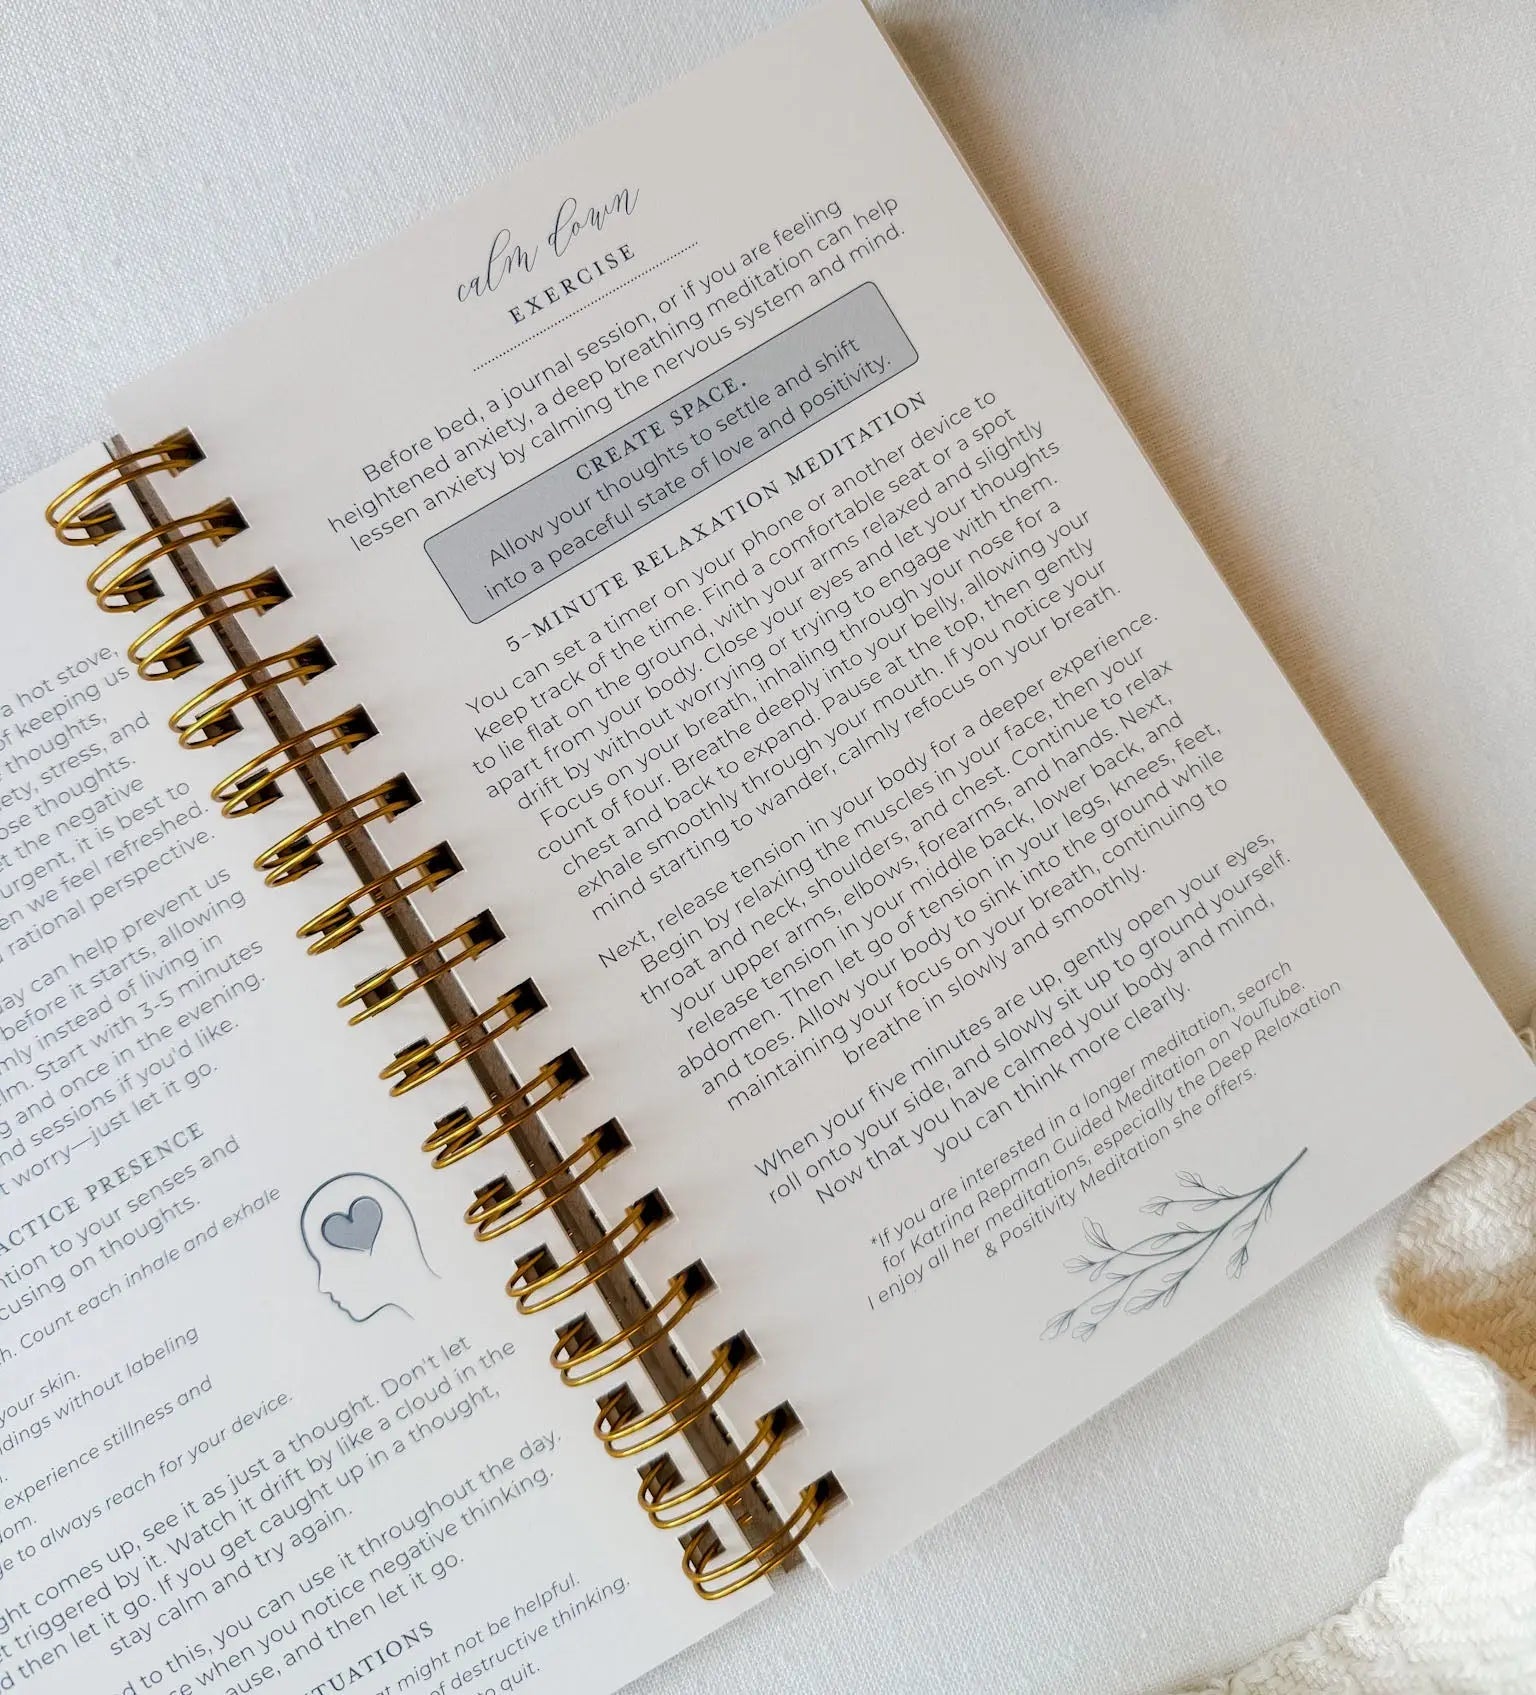 a hot stove,
of keeping us
thoughts,
stress, and
those thoughts.
the negative
urgent, it is best to
we feel refreshed.
rational perspective.
day can help prevent us
before it starts, allowing
instead of living in
Start with 3-5 minutes
and once in the evening.
sessions if you'd like.
worry—just let it go.
PRESENCE
to your senses and
on thoughts.
Count each inhale and exhale
your skin.
without labeling
experience stillness and
to always reach for your device.
comes up, see it as just a thought. Don't let
triggered by it. Watch it drift by like a cloud in the
then let it go. If you get caught up in a thought,
stay calm and try again.
to this, you can use it throughout the day.
when you notice negative thinking.
and then let it go.
might not be helpful.
of destructive thinking.
to quit.
calm down
EXERCISE
Before bed, a journal session, or if you are feeling
heightened anxiety, a deep breathing meditation can help
lessen anxiety by calming the nervous system and mind.
CREATE SPACE.
Allow your thoughts to settle and shift
into a peaceful state of love and positivity.
5-MINUTE RELAXATION MEDITATION
You can set a timer on your phone or another device to
keep track of the time. Find a comfortable seat or a spot
to lie flat on the ground, with your arms relaxed and slightly
apart from your body. Close your eyes and let your thoughts
drift by without worrying or trying to engage with them.
Focus on your breath, inhaling through your nose for a
count of four. Breathe deeply into your belly, allowing your
chest and back to expand. Pause at the top, then gently
exhale smoothly through your mouth. If you notice your
mind starting to wander, calmly refocus on your breath.
Next, release tension in your body for a deeper experience.
Begin by relaxing the muscles in your face, then your
throat and neck, shoulders, and chest. Continue to relax
your upper arms, elbows, forearms, and hands. Next,
release tension in your middle back, lower back, and
abdomen. Then let go of tension in your legs, knees, feet,
and toes. Allow your body to sink into the ground while
maintaining your focus on your breath, continuing to
breathe in slowly and smoothly.
When your five minutes are up, gently open your eyes,
roll onto your side, and slowly sit up to ground yourself.
Now that you have calmed your body and mind,
you can think more clearly.
*If you are interested in a longer meditation, search
for Katrina Repman Guided Meditation on YouTube.
I enjoy all her meditations, especially the Deep Relaxation
& Positivity Meditation she offers.